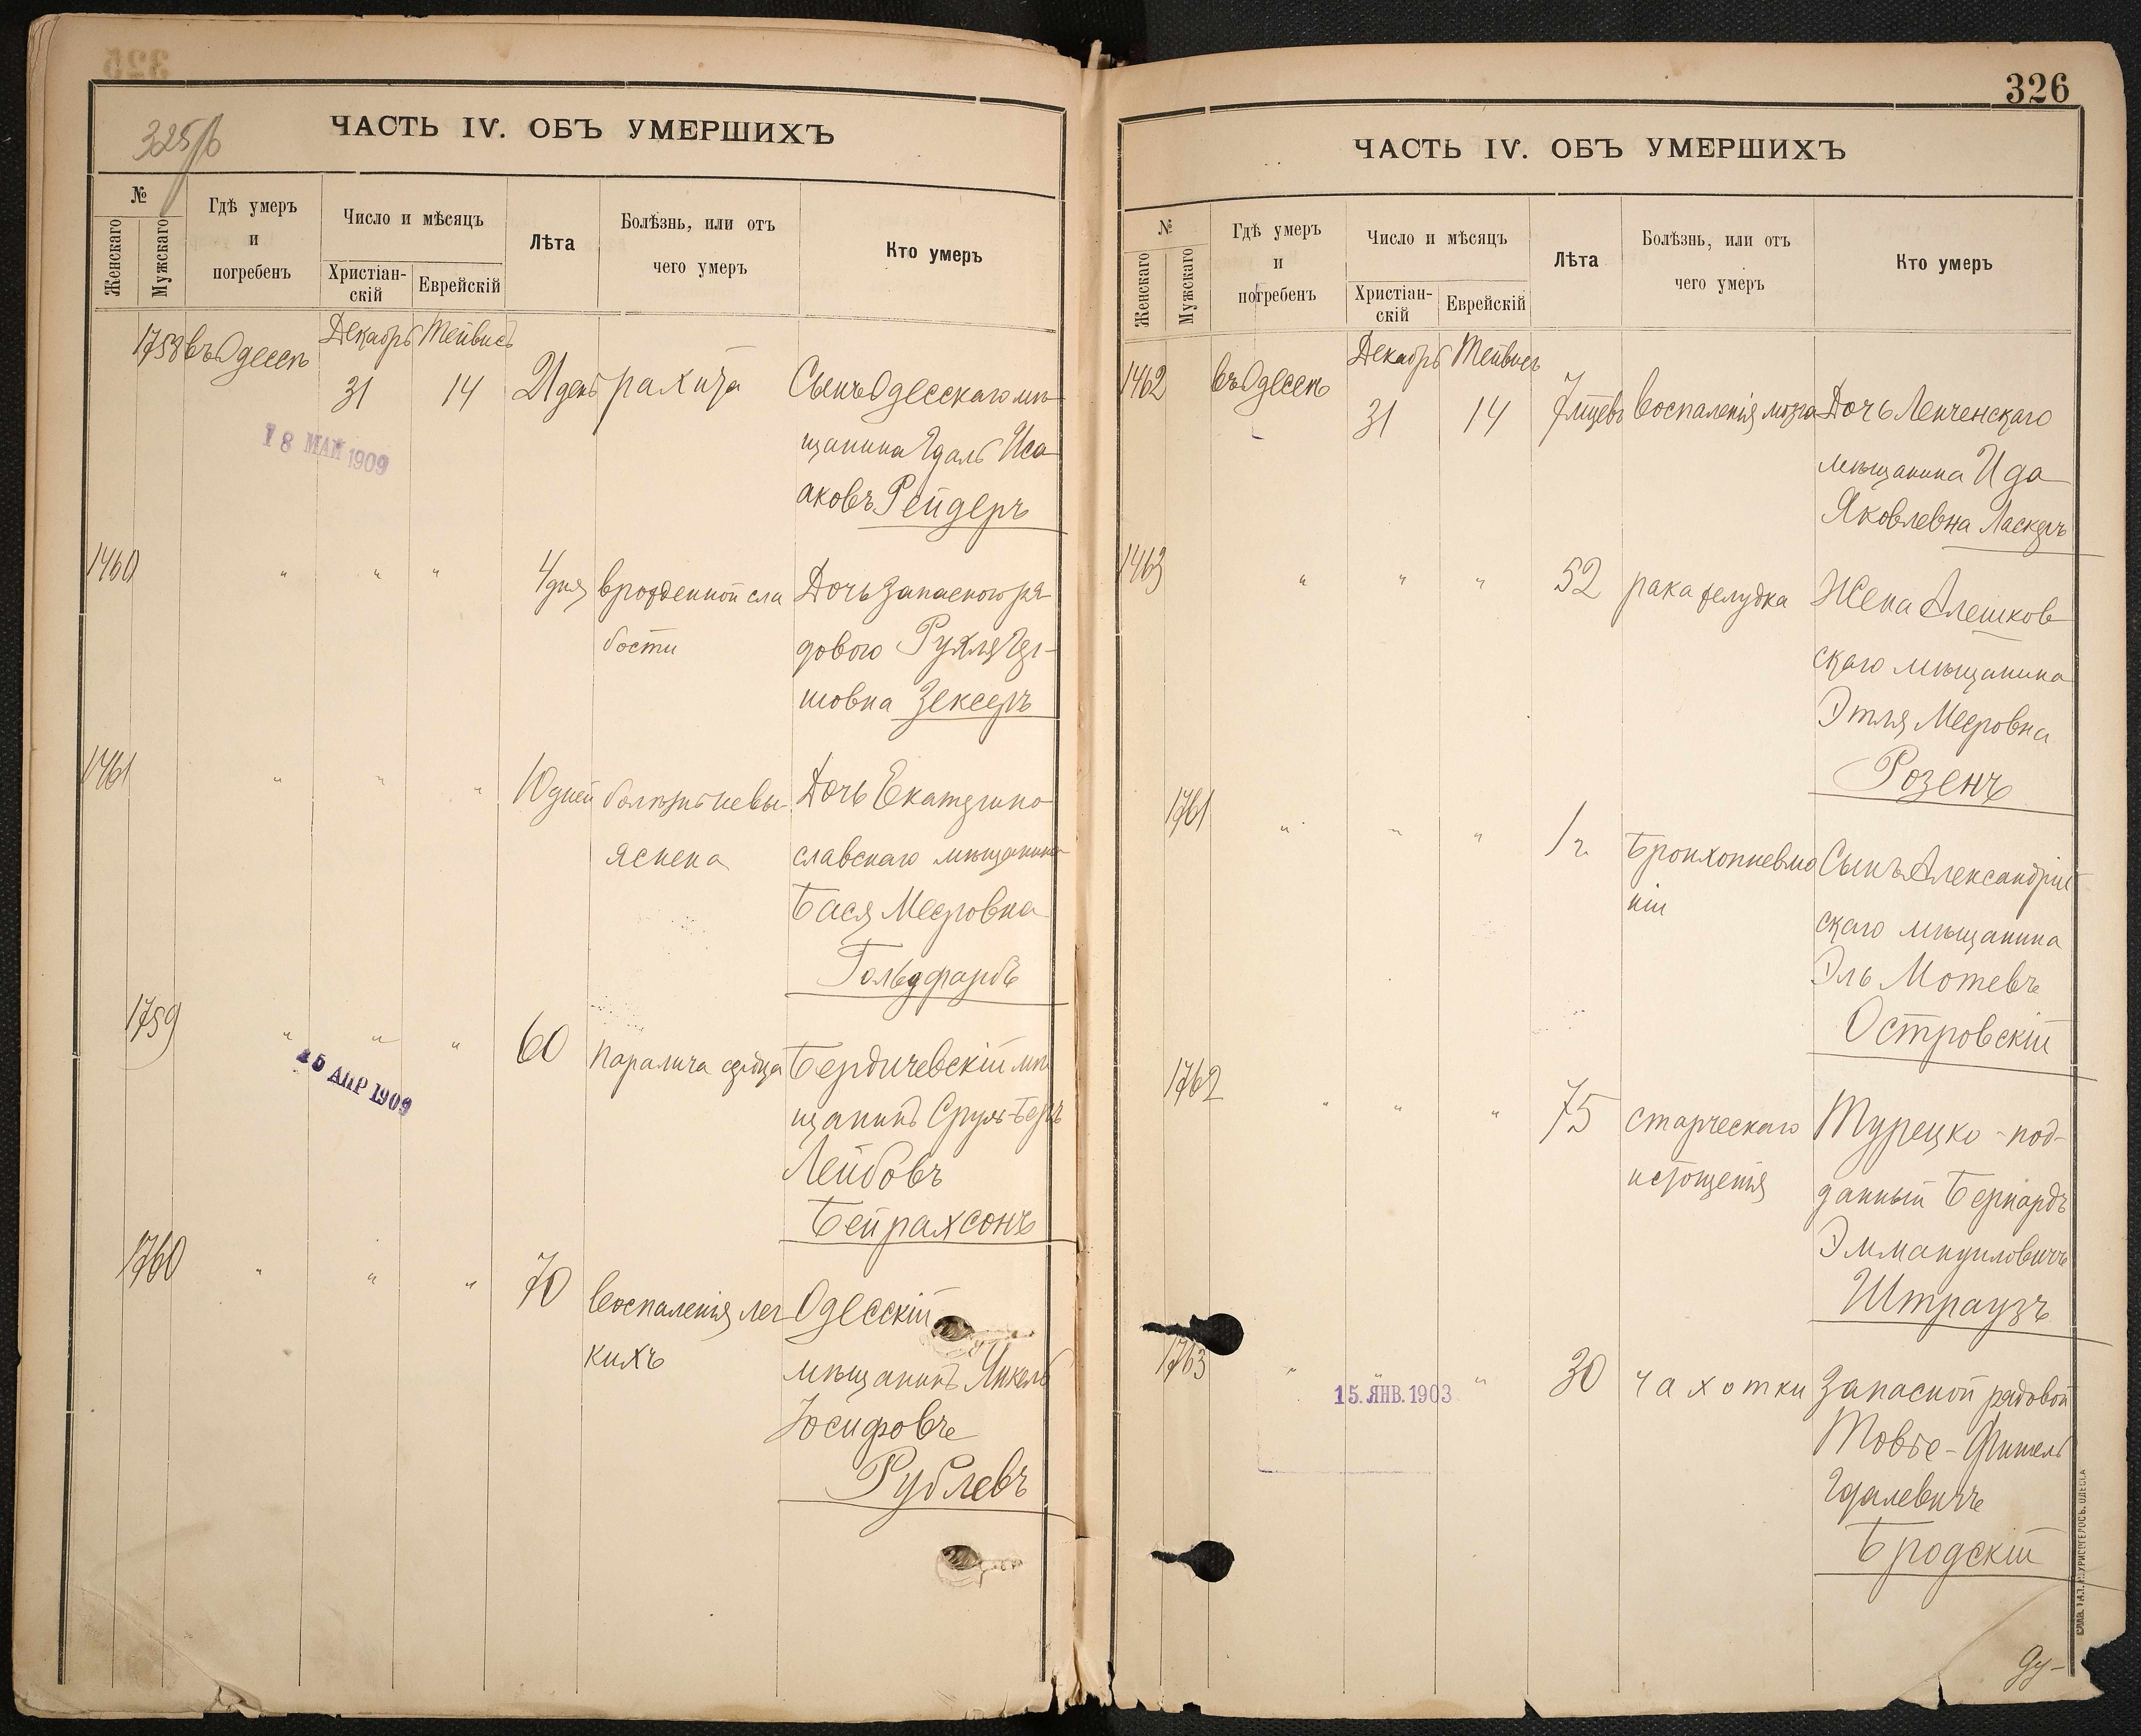 325/б
ЧАСТЬ IV. ОБЪ УМЕРШИХЪ
№
Женскаго
Мужскаго
Гдѣ умеръ
и
погребенъ
Число и мѣсяцъ
Христіан-
скій
Еврейскій
Лѣта
Болѣзнь, или отъ
чего умеръ
Кто умеръ
1758 въ Одессѣ Декабрь Тейвисъ
31 14 21 день рахита Сынъ Одесскаго мѣ
щанина Гдаль Иса
аковъ Рейдеръ
18 МАЙ 1909
1460 " " " 4 дня врожденной сла Дочь запасного ря
бости дового Рухля Гер-
шовна Зексеръ
1461 " " " 10 дней болѣзнь невы- Дочь Екатерино
яснена славскаго мѣщанина
Бася Мееровна
Гольдфарбъ
1759 " " " 60 паралича сердца Бердичевскій мѣ
щанинъ Сруль-Беръ
Лейбовъ
Бейрахсонъ
15 АПР 1909
1760 " " " 70 воспаленія лег Одесскій
кихъ мѣщанинъ Янкель
Іосифовъ
Рублевъ
326
ЧАСТЬ IV. ОБЪ УМЕРШИХЪ
№
Женскаго
Мужскаго
Гдѣ умеръ
и
погребенъ
Число и мѣсяцъ
Христіан-
скій
Еврейскій
Лѣта
Болѣзнь, или отъ
чего умеръ
Кто умеръ
1462 въ Одессѣ Декабрь Тейвисъ
31 14 7 мцевъ воспаленія мозга Дочь Ленченскаго
мѣщанина Ида
Яковлевна Ласкеръ
1463 " " " 52 рака желудка Жена Алешков
скаго мѣщанина
Этля Мееровна
Розенъ
1761 " " " 1 г. Бронхопневмо Сынъ Александрій
ніи скаго мѣщанина
Эль Мотевъ
Островскій
1762 " " " 75 старческаго Турецко-под-
истощенія данный Бернардъ
Эммануиловичъ
Штраузъ
1763 " " " 30 чахотки Запасной рядовой
Товье-Фишель
Гдалевичъ
Бродскій
15. ЯНВ. 1903